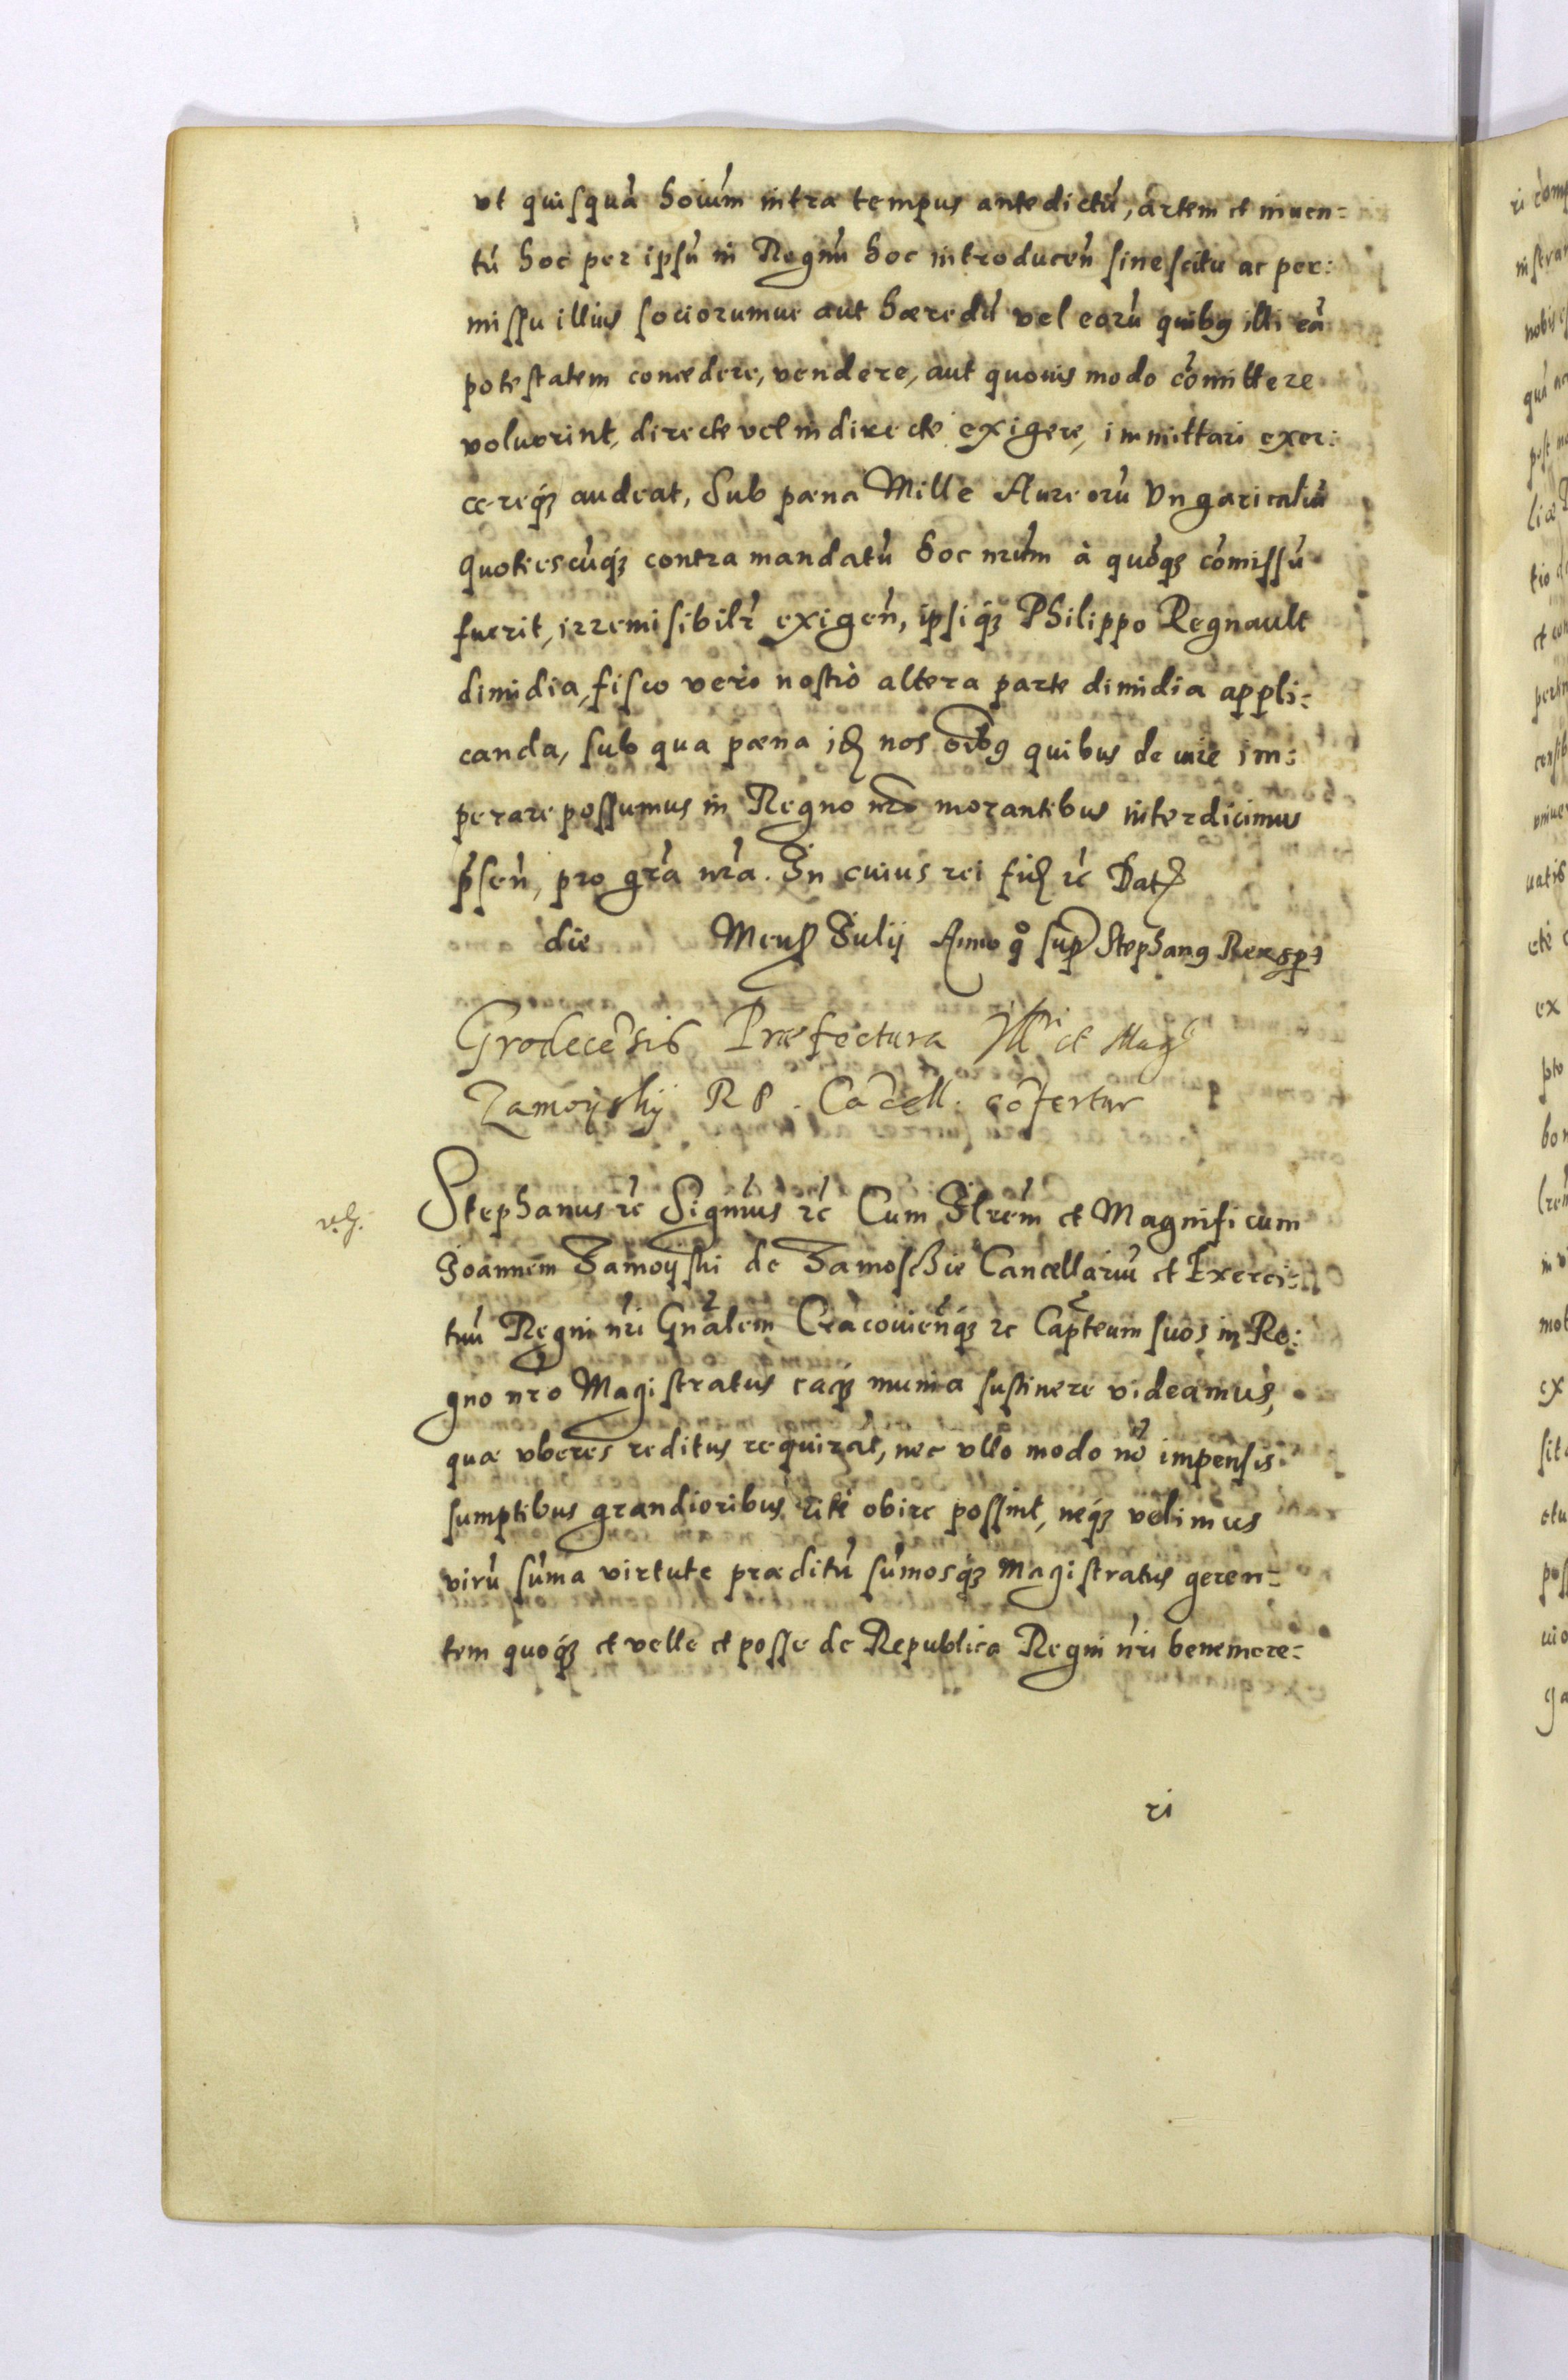 vt quisquā hoīum intra tempus antedictū, artem et inuen=
tū hoc per ipsū in Regnū hoc introducen̄ sine scitu ac per:
missu illius sociorumue aut hæredū vel eorū quibꝰ illi eā
potestatem concedere, vendere, aut quouis modo cōmittere
voluerint, directe vel indirecte exigere, immittari exer:
cereqꝫ audeat, Sub pæna Mille Aureorū Vngaricaliū
quotiescūqꝫ contra mandatū hoc nr̄um à quōqꝫ cōmissū
fuerit, irremisibilr̄ exigen̄, ipsiqꝫ Philippo Regnault
dimidia, fisco vero nostro altera parte dimidia appli:
canda, sub qua pæna id nos oībꝰ quibus de iure im:
perare possumus in Regno nr̄o morantibus interdicimus
p̄sen̄, pro gr̄a nr̄a. In cuius rei fid ꝛc Dat
die Mens Iulij Anno q° sup Stephanꝰ Rex spt
Grodecēsis Præfectura Illri et Magco
Zamoyskij R P. Cācell. cōfertur
v.g.
Stephanus ꝛc Signm̄us ꝛc Cum Illrem̄ et Magnificum
Joannem Zamoyski de Zamoschie Cancellariū et Exerci:
tuū Regni nr̄i Gn̄alem Cracouien̄qꝫ ꝛc Capteum suos in Re:
gno nr̄o Magistratus eaqꝫ munia sustinere videamus,
quæ vberes reditus requirāt, nec vllo modo nō impensis
sumptibus grandioribus rite obire possint, neqꝫ velimus
virū sūma virtute præditū sūmosqꝫ Magistratus geren=
tem quoqꝫ et velle et posse de Republica Regni nr̄i benemere=
ri